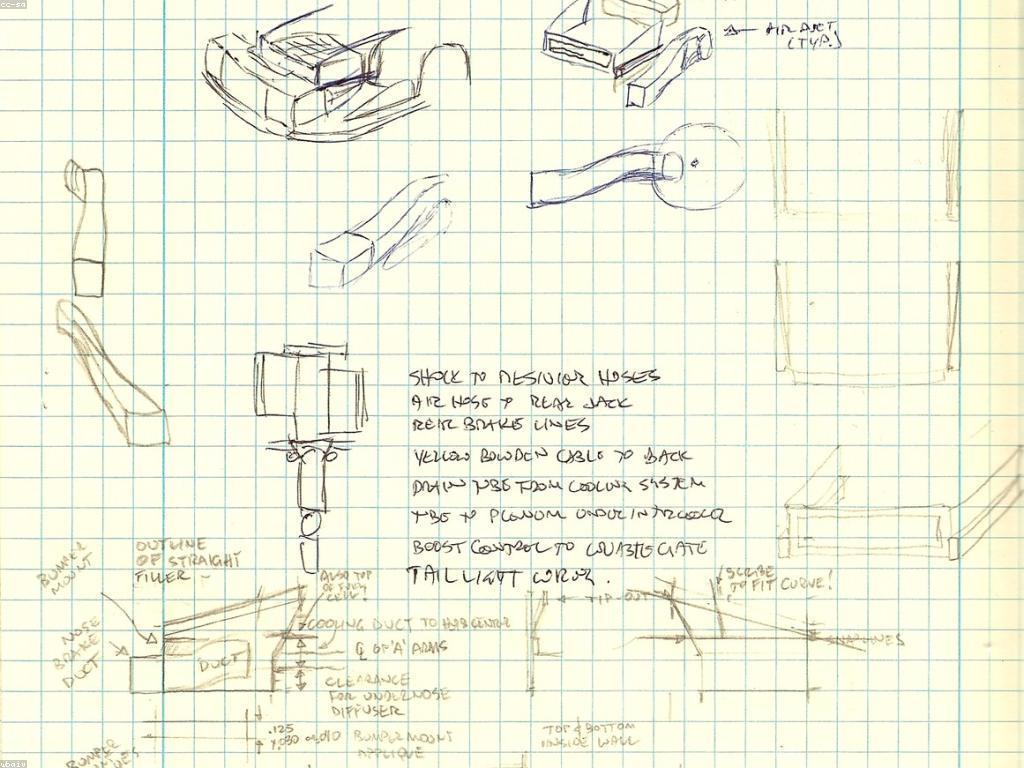 AIR DUCT
(TYP.)
SHOCK TO RESIVIOR HOSES
AIR HOSE TO REAR JACK
REAR BRAKE LINES
YELLOW BOWDEN CABLE TO BACK
DRAIN TUBE FROM COOLING SYSTEM
TUBE TO PLENUM UNDER INTERCOOLER
BOOST CONTROL TO WASTEGATE
TAIL LIGHT
OUTLINE
OF STRAIGHT
FILLER
BUMPER
MOUNT
NOSE
BRAKE
DUCT
ALSO TOP
OF FUEL
CELL!
TIP-OUT
SCRIBE
TO FIT CURVE!
COOLING DUCT TO
℄ OF 'A' ARMS
SNAP LINES
DUCT
CLEARANCE
FOR UNDERNOSE
DIFFUSER
.125
BUMPER MOUNT
APPLIQUE
TOP & BOTTOM
INSIDE WALL
BUMPER